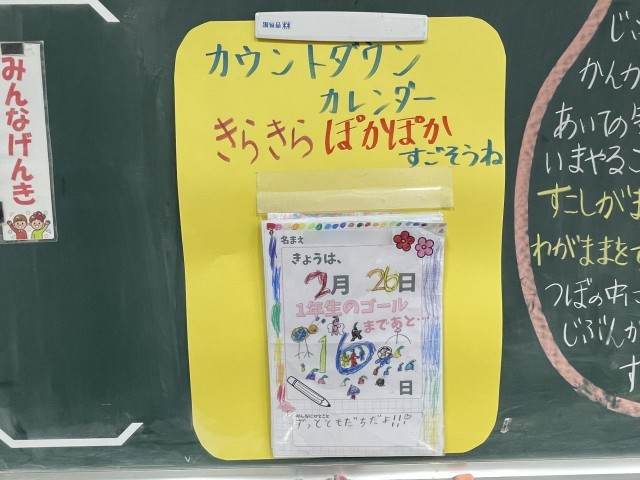 みんなげんき
カウントダウン
カレンダー
きらきら ぽかぽか
すごそうね
名まえ
きょうは、
2月 26日
1年生のゴール
まであと…
16
日
みんなにひとこと
ずっとともだちだよ!!!
じぶ
かんか
あいての気
いまやるこ
すこしがま
わがままをで
つぼの中に
じぶんが
す